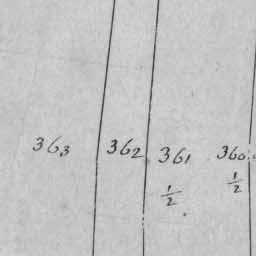 363 362 361 360
1/2 1/2